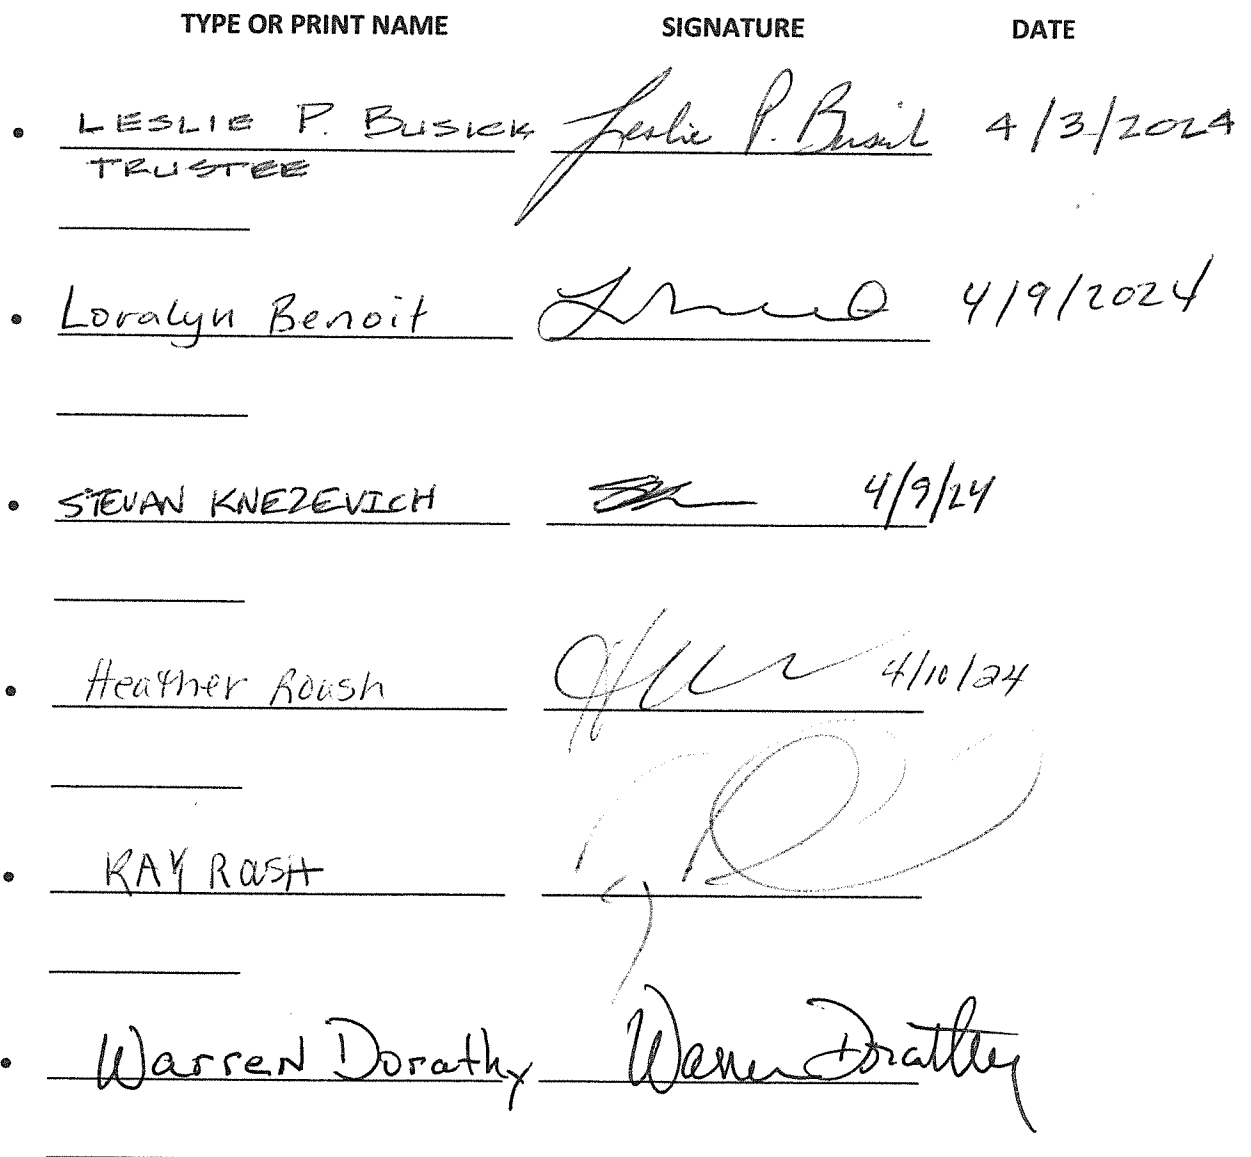 TYPE OR PRINT NAME SIGNATURE DATE
• LESLIE P. BUSICK Leslie P. Busick 4/3/2024
TRUSTEE
• Loralyn Benoit 4/9/2024
• STEVAN KNEZEVICH 4/9/24
• Heather Roush 4/10/24
• RAY ROUSH
• Warren Dorathy Warren Dorathy